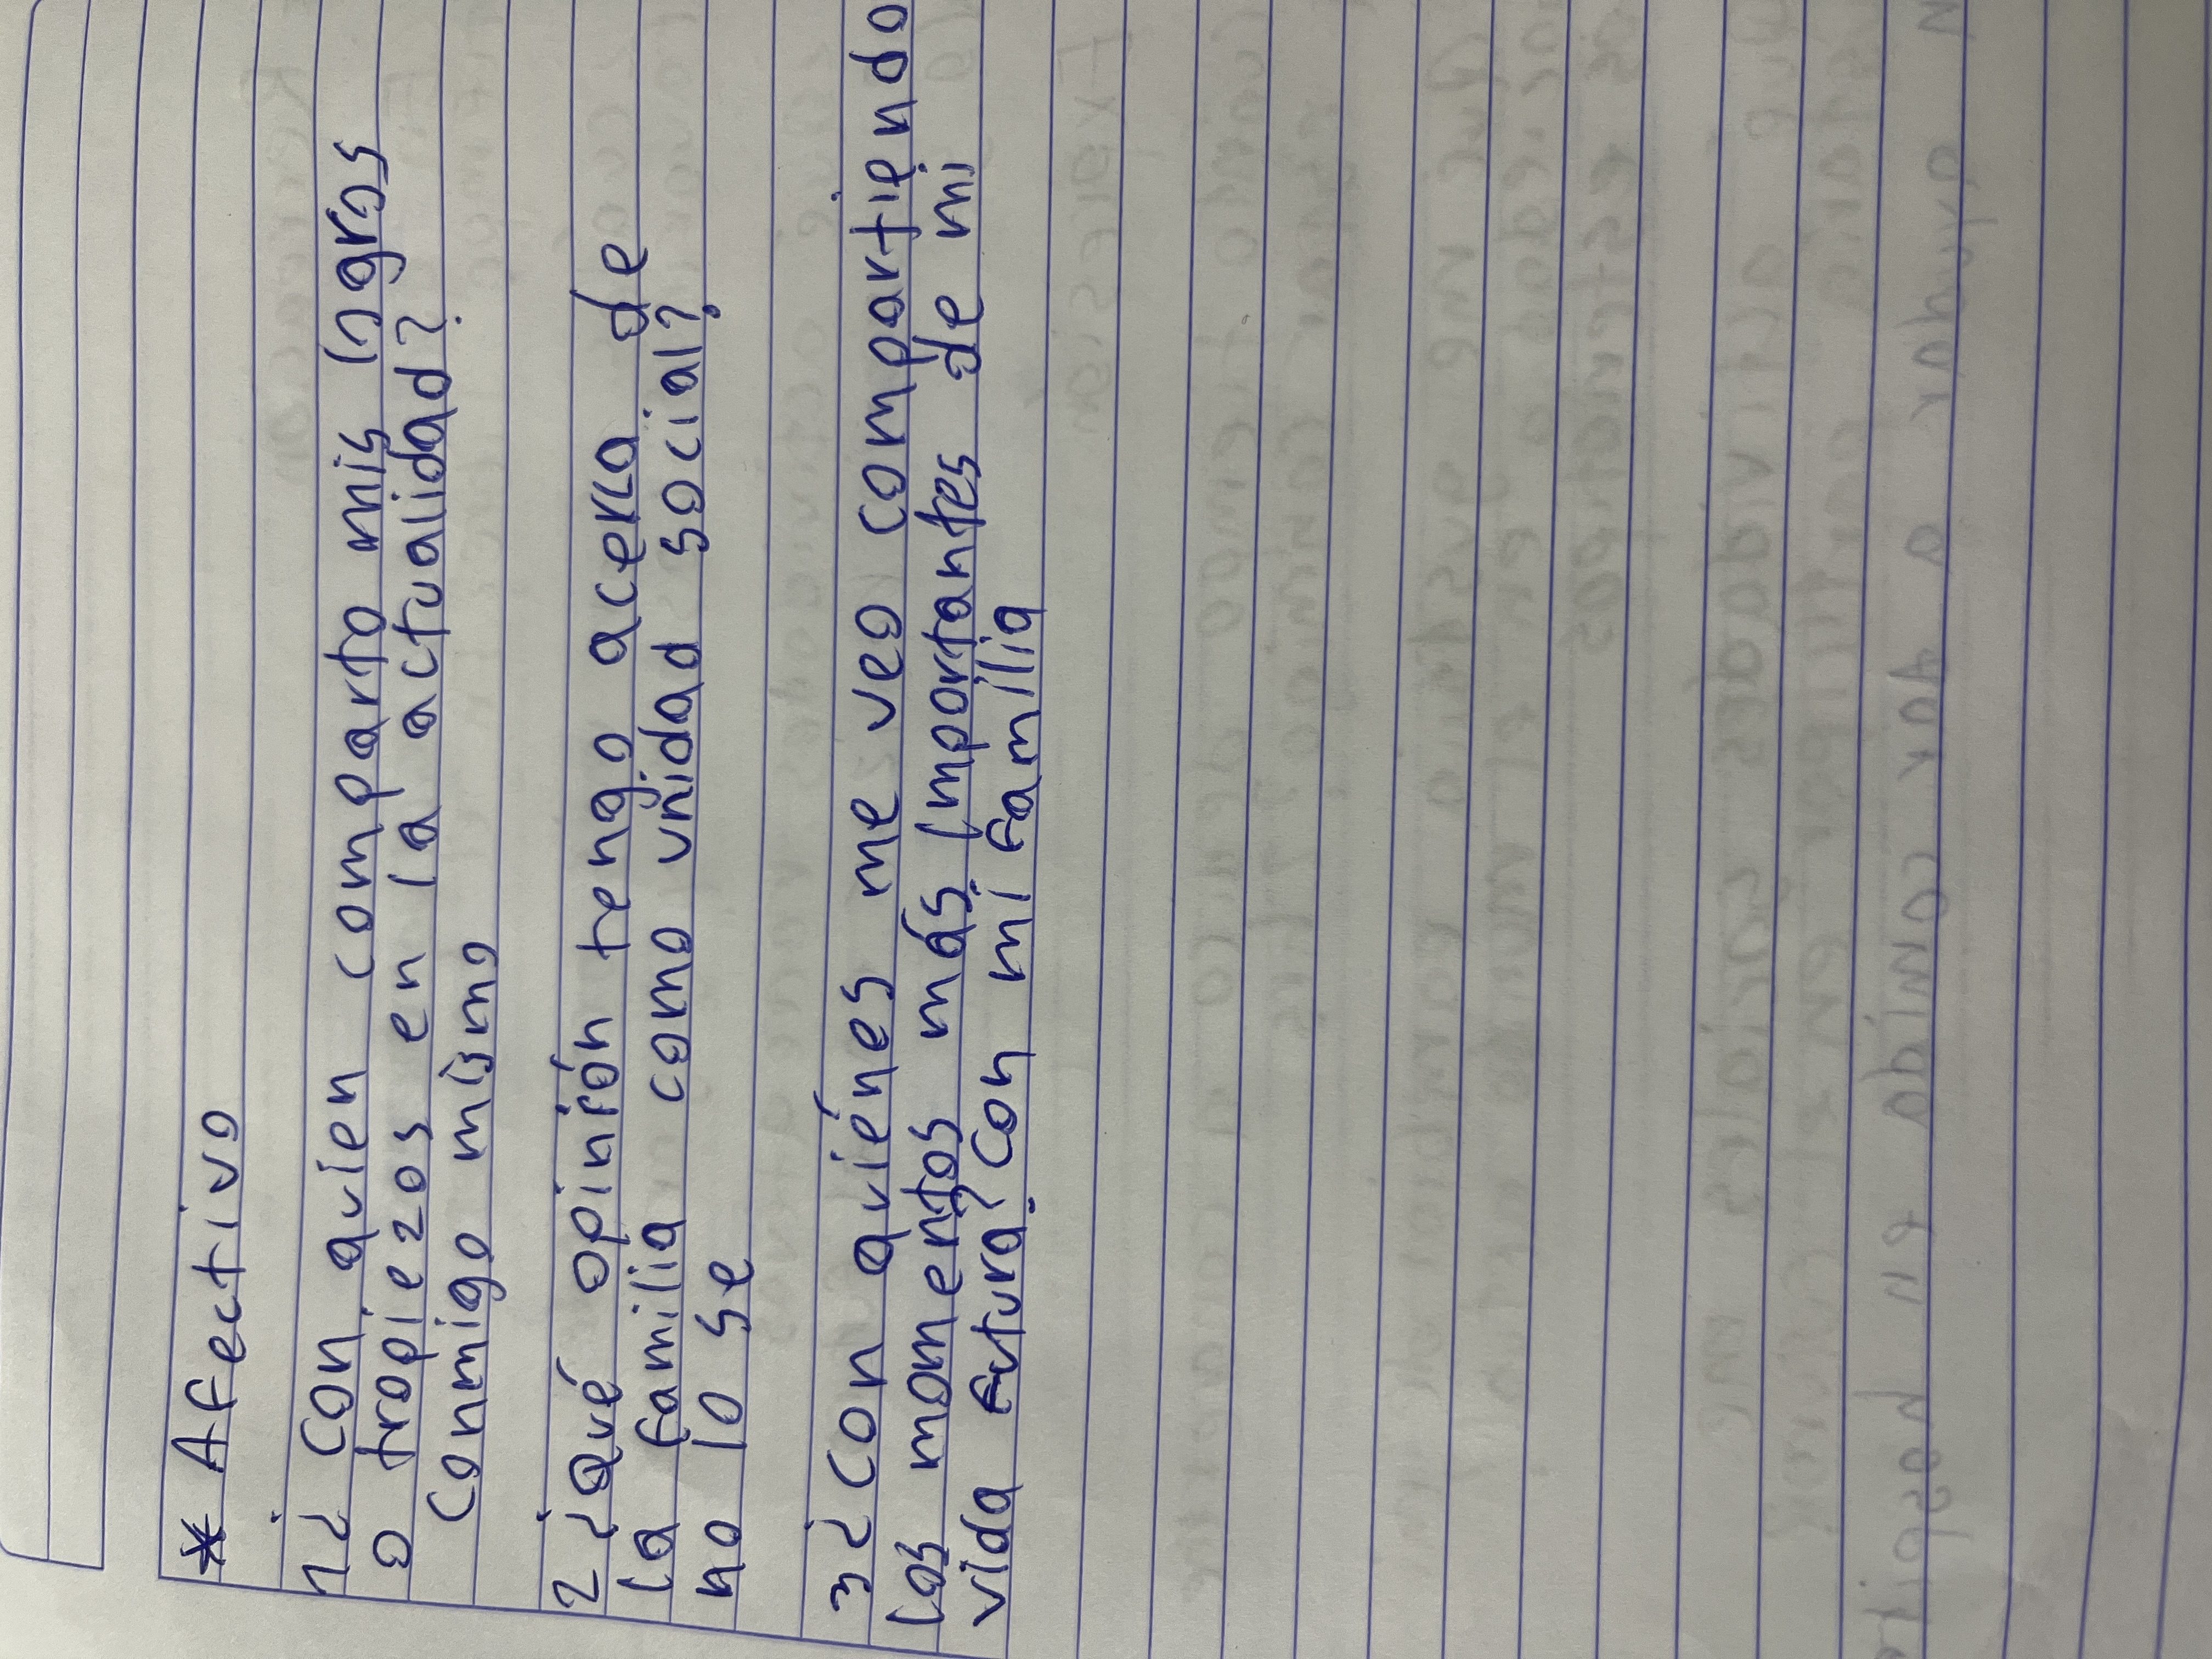 * Afectivo
1¿ Con quien comparto mis logros
o tropiezos en la actualidad?
Conmigo mismo
2 ¿Qué opinión tengo acerca de
la familia como unidad social?
no lo se
3¿ Con quiénes me veo compartiendo
los momentos más importantes de mi
vida futura? Con mi familia